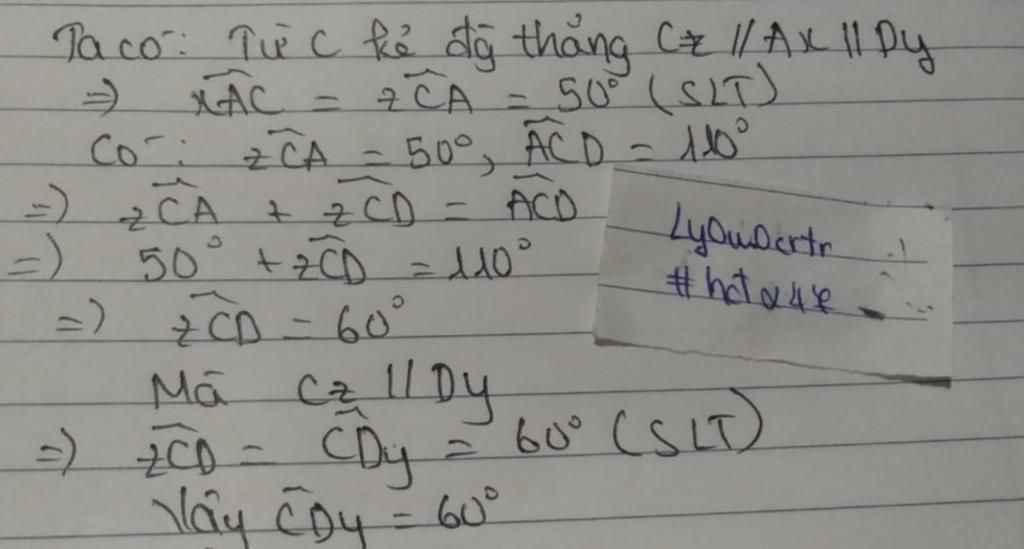 Ta có: Từ C kẻ đg thẳng Cz // Ax // Dy
=> xAC = zCA = 50° (SLT)
Có: zCA = 50°, ACD = 110°
=> zCA + zCD = ACD
=> 50° + zCD = 110°
=> zCD = 60°
Mà Cz // Dy
=> zCD = CDy = 60° (SLT)
Vậy CDy = 60°